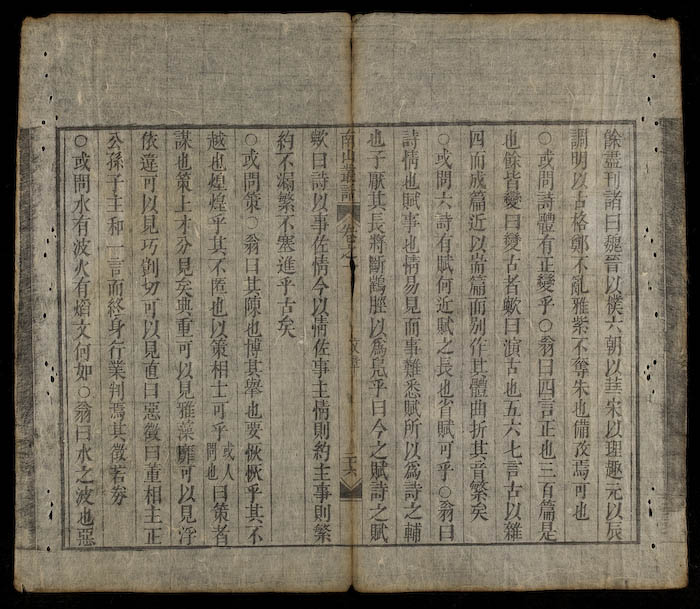 餘盡刊諸曰魏晉以樸六朝以菲宋以理趣元以辰
調明以古格鄭不亂雅紫不奪朱也備茂焉可也
○或問詩體有正變乎○翁曰四言正也三百篇是
也餘皆變曰變古者歟曰演古也五六七言古以雜
四而成篇近以崙篇而別作其體曲折其音繁矣
○或問六詩有賦何近賦之長也省賦可乎○翁曰
詩情也賦事也情易見而事難悉賦所以為詩之輔
也子厭其長將斷鶴脛以為鳧乎曰今之賦詩之賦
南山叢話 卷之一 文章 二十六
歟曰詩以事佐情今以情佐事主情則約主事則繁
約不漏繁不塞進乎古矣
○或問策○翁曰其陳也博其舉也要恢恢乎其不
越也煌煌乎其不匿也以策相士可乎或人問也曰策者
謀也策上才分見矣典重可以見雅藻靡可以見浮
依違可以見巧剴切可以見直曰惡徵曰董相主正
公孫子主和一言而終身行業判焉其徵若券
○或問水有波火有熖文何如○翁曰水之波也惡